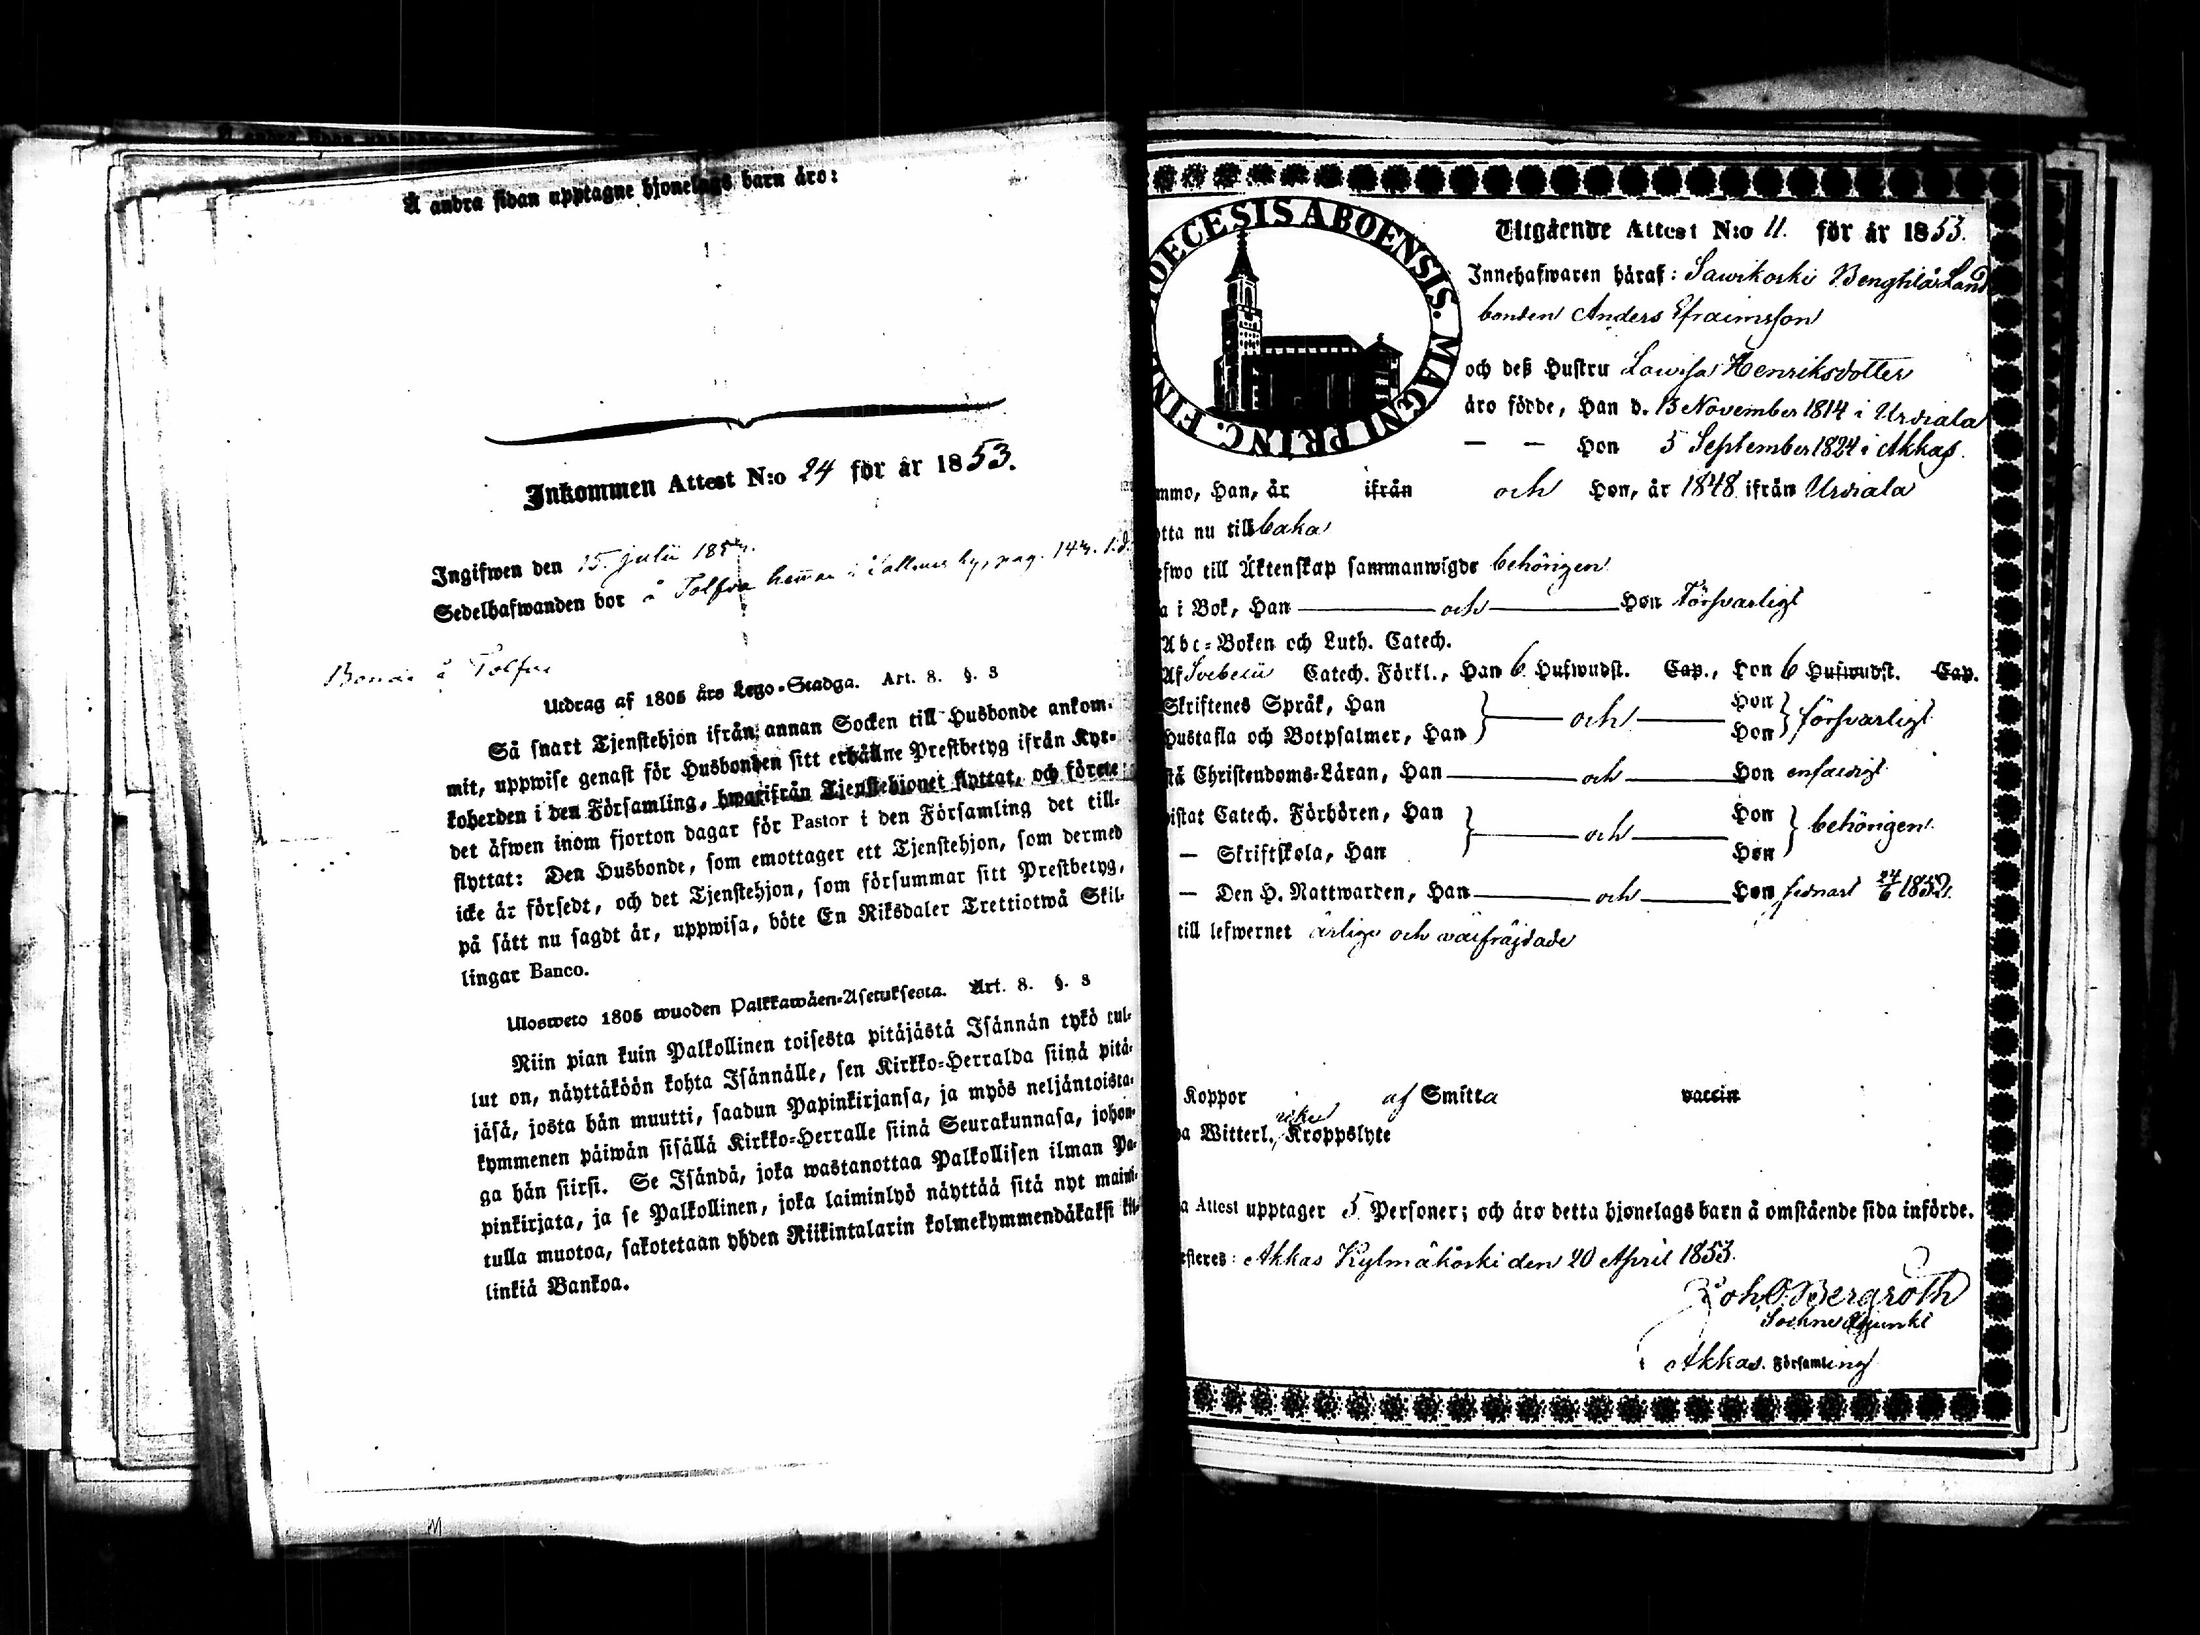 Å andra sidan upptagne hjonelags barn äro:
Inkommen Attest N:o 24 för år 1853.
Ingifwen den 15 Julii 185
Sedelhafwanden bor å Tolfva pag. 143.
å Tolfva
Utdrag af 1805 års Lego-Stadga. Art. 8. §. 3
Så snart Tjenstehjon ifrån annan Socken till Husbonde ankom-
mit, uppwise genast för Husbonden sitt erhållne Prestbetyg ifrån Kyr-
koherden i den Församling, hwarifrån Tjenstehjonet flyttat, och förete
det äfwen inom fjorton dagar för Pastor i den Församling det till-
flyttat: Den Husbonde, som emottager ett Tjenstehjon, som dermed
icke är försedt, och det Tjenstehjon, som försummar sitt Prestbetyg,
på sätt nu sagdt är, uppwisa, böte En Riksdaler Trettiotwå Skil-
lingar Banco.
Ulosweto 1805 wuoden Palkkawäen-Asetuksesta. Art. 8. §. 3
Niin pian kuin Palkollinen toisesta pitäjästä Isännän tykö tul-
lut on, näyttäköön kohta Isännälle, sen Kirkko-Herralda siinä pitä-
jäsä, josta hän muutti, saadun Papinkirjansa, ja myös neljäntoista-
kymmenen päiwän sisällä Kirkko-Herralle siinä Seurakunnasa, johon-
ga hän siirsi. Se Isändä, joka wastanottaa Palkollisen ilman Pa-
pinkirjata, ja se Palkollinen, joka laiminlyö näyttää sitä nyt maini-
tulla muotoa, sakotetaan yhden Riikintalarin kolmekymmendäkaksi kil-
linkiä Bankoa.
DIOECESIS ABOENSIS. MAGNI PRINC. FIN
Utgående Attest N:o 11. för år 1853.
Innehafwaren häraf: Sawikoski Bengtilä Land
bonden Anders Efraimsson
och deß Hustru Lowisa Henriksdotter
äro födde, Han d. 13 November 1814 i Urdiala
— — Hon 5 September 1824 i Akkas.
mmo, Han, år ifrån och Hon, år 1848 ifrån Urdiala
otta nu tillbaka
efwo till Äktenskap sammanwigde behörigen
a i Bok, Han — och — Hon försvarligt
Abc-Boken och Luth. Catech.
Af Svebelii Catech. Förkl., Han 6 Hufwudst. Cap., Hon 6 Hufwudst. Cap.
Skriftenes Språk, Han — och — Hon försvarligt
Hustafla och Botpsalmer, Han Hon
stå Christendoms-Läran, Han — och — Hon enfaldigt
istat Catech. Förhören, Han — och — Hon behörigen
— Skriftskola, Han Hon
— Den H. Nattwarden, Han — och — Hon sednast 24/6 1852.
till lefwernet ärlige och välfräjdade
Koppor af Smitta vaccin
a Witterl. Kroppslyte
a Attest upptager 5 Personer; och äro detta hjonelags barn å omstående sida införde.
esteres: Akkas Kylmäkoski den 20 April 1853.
Joh O. Bergroth
Sockne Adjunkt
i Akkas. Församling